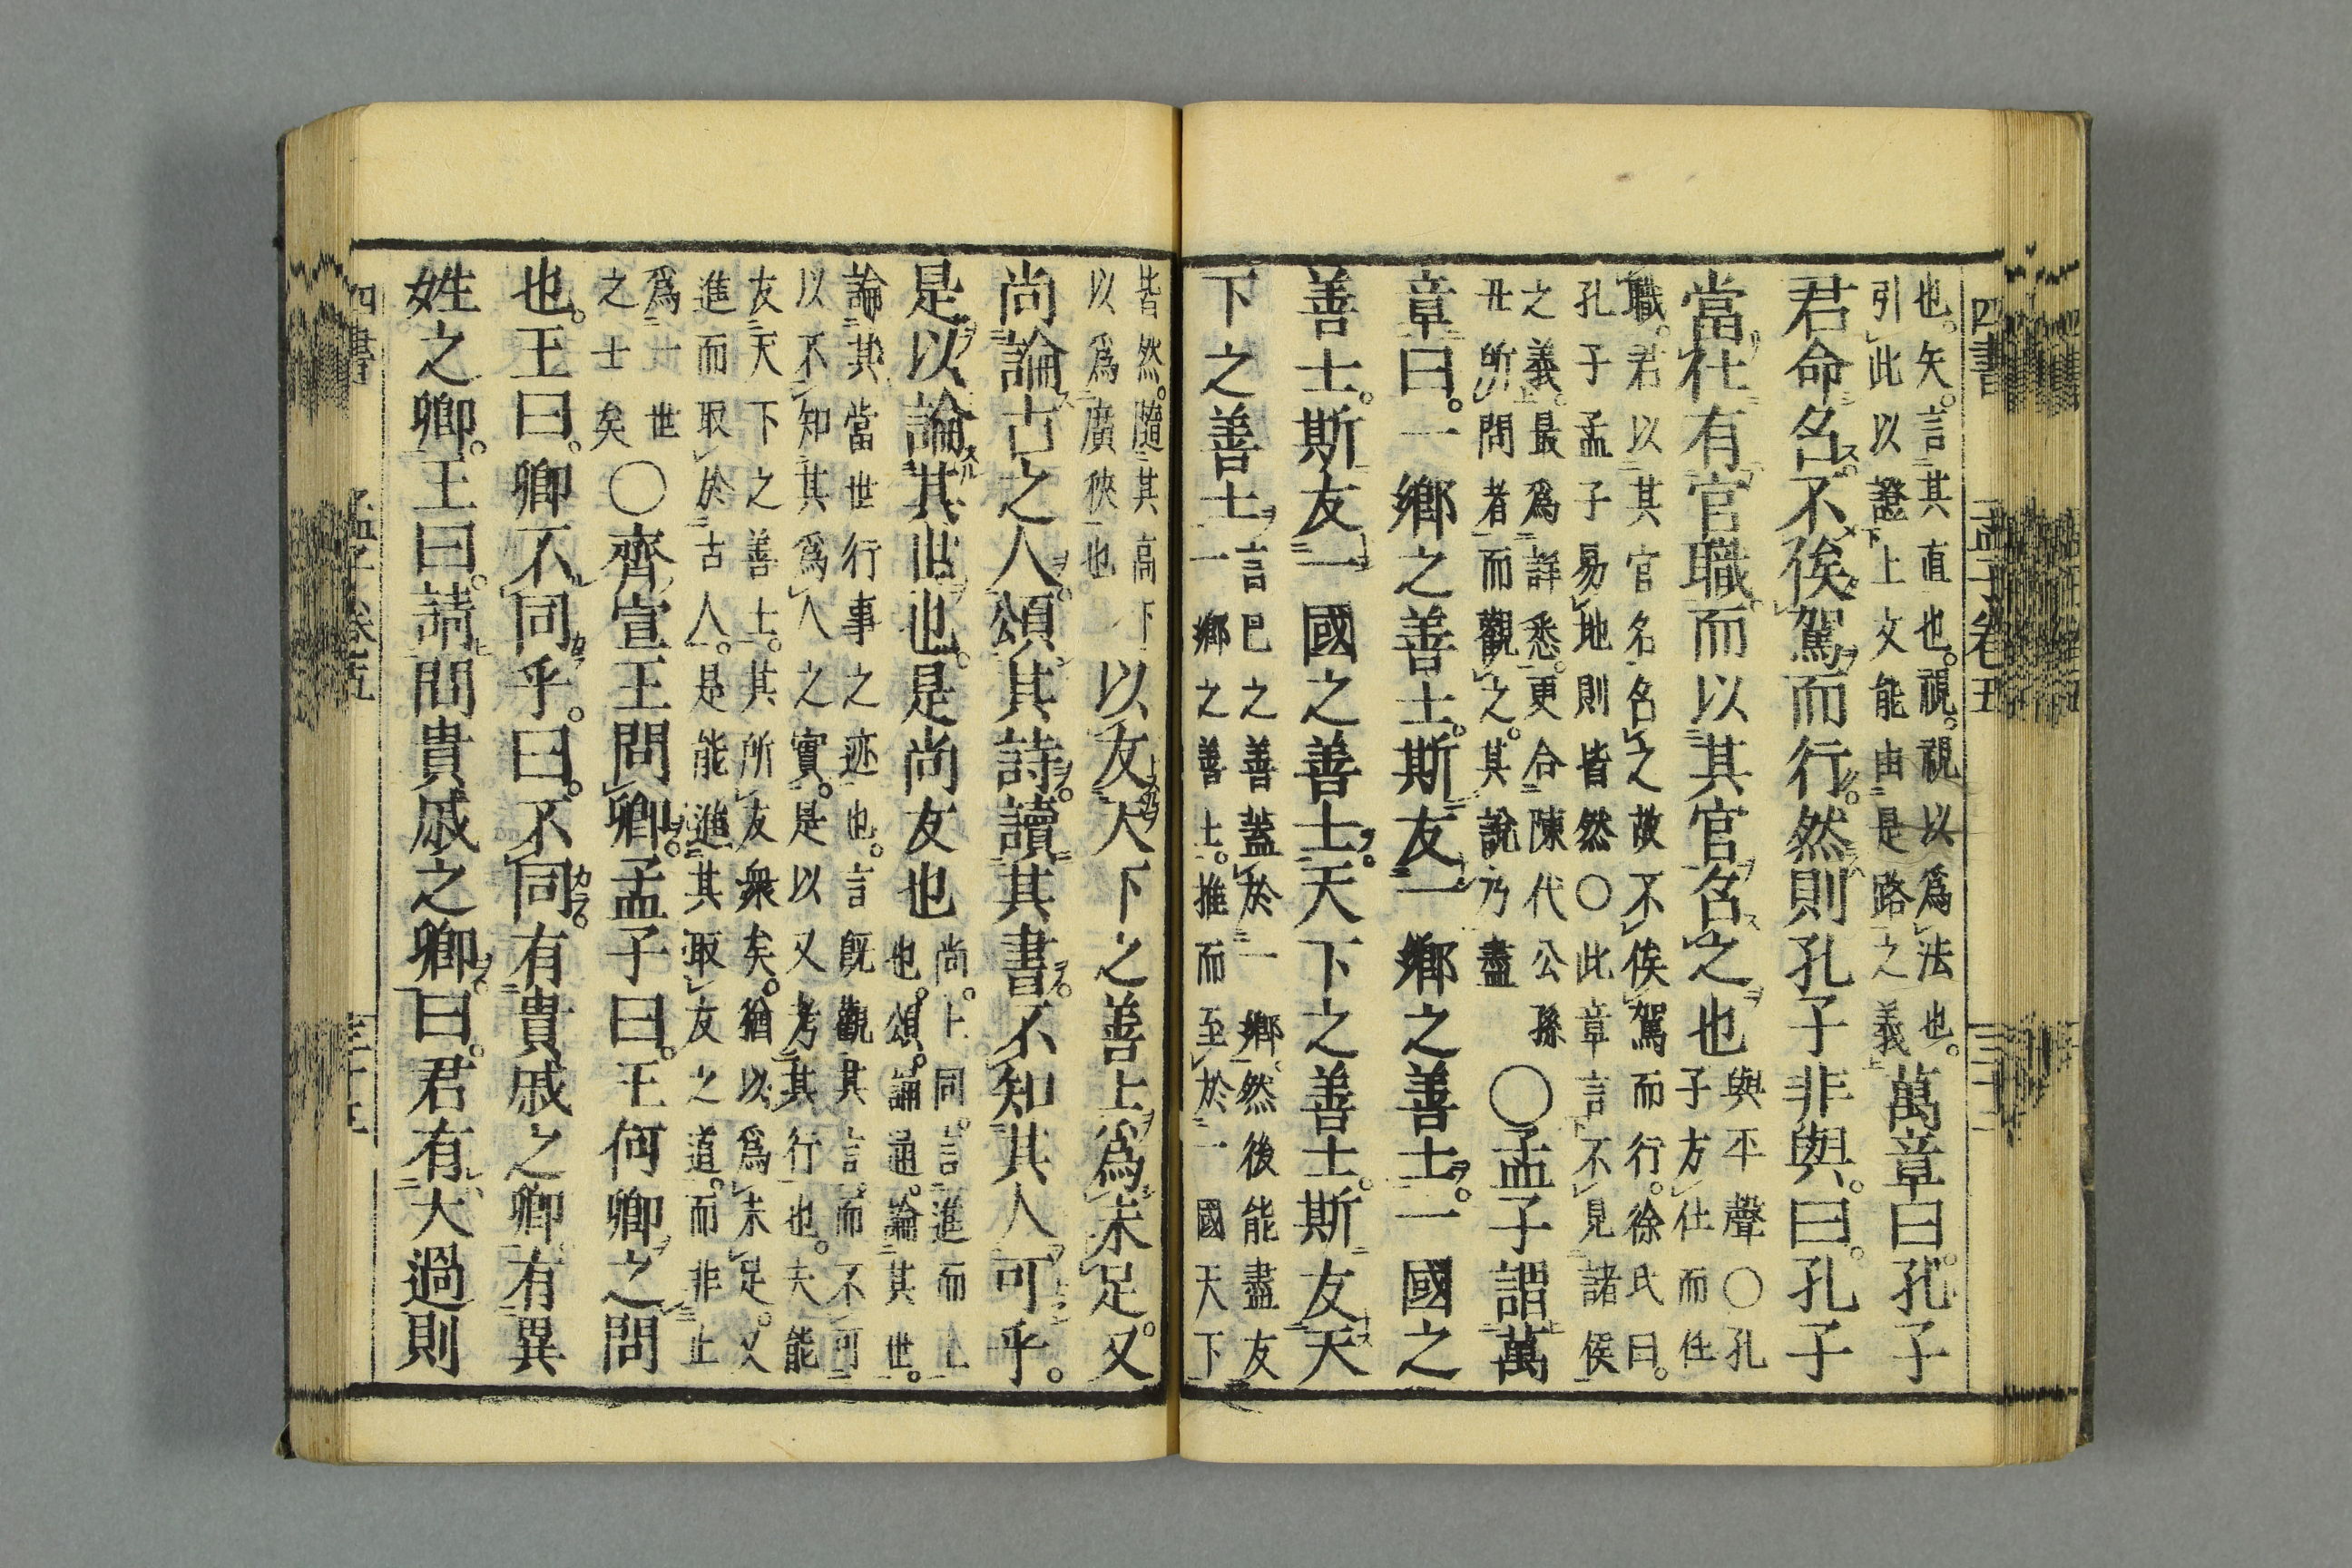 四書 孟子卷五 三十二
也。矢。言其直也。視。視以爲法也。
引此以證上文能由是路之義
萬章曰。孔子
君命名。不俟駕而行。然則孔子非與。曰。孔子
當仕有官職。而以其官名之也
與平聲○孔
子方仕而任
職。君以其官名名之。故不俟駕而行。徐氏曰。
孔子孟子易地則皆然○此章言不見諸侯
之義。最爲詳悉。更合陳代公孫
丑所問者而觀之。其說乃盡
○孟子謂萬
章曰。一鄉之善士。斯友一鄉之善士。一國之
善士。斯友一國之善士。天下之善士。斯友天
下之善士
言已之善蓋於一鄉。然後能盡友
一鄉之善士。推而至於一國天下
皆然。隨其高下
以爲廣狹也
以友天下之善士爲未足。又
尚論古之人。頌其詩。讀其書。不知其人可乎。
是以論其世也。是尚友也
尚。上同。言進而上
也。頌。誦通。論其世。
論其當世行事之迹也。言旣觀其言。而不可
以不知其爲人之實。是以又考其行也。夫能
友天下之善士。其所友衆矣。猶以爲未足。又
進而取於古人。是能進其取友之道。而非止
爲一世
之士矣
○齊宣王問卿。孟子曰。王何卿之問
也。王曰。卿不同乎。曰。不同。有貴戚之卿。有異
姓之卿。王曰。請問貴戚之卿。曰。君有大過則
四書 孟子卷五